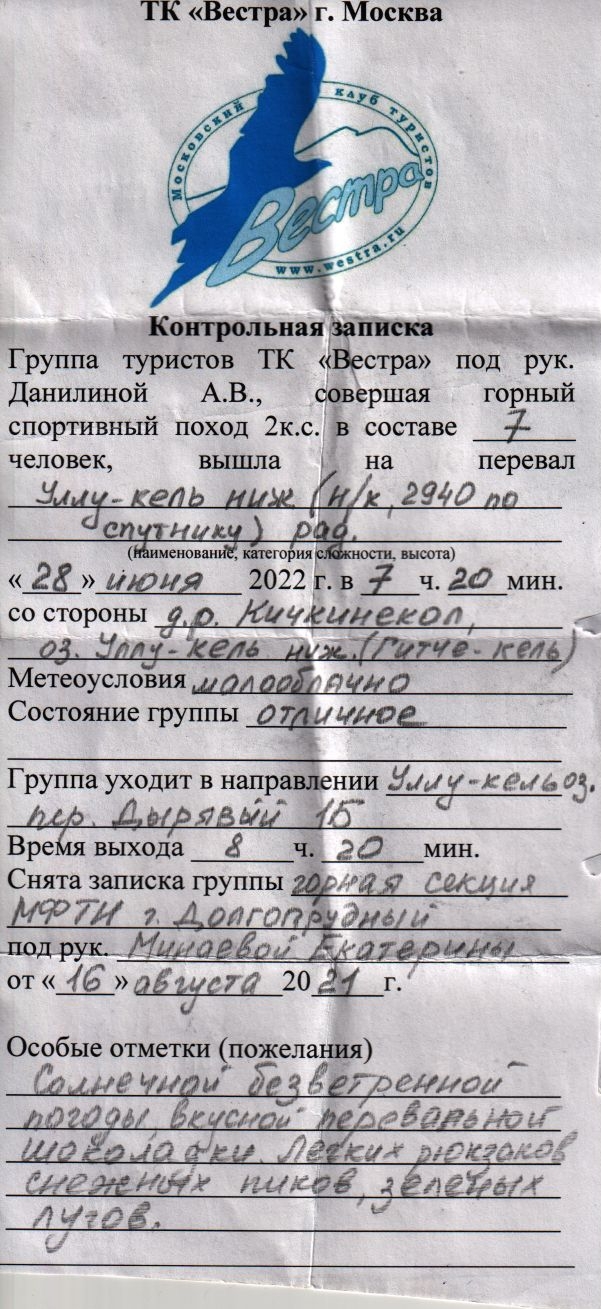 ТК «Вестра» г. Москва
Московский клуб туристов
Вестра
www.westra.ru
Контрольная записка
Группа туристов ТК «Вестра» под рук.
Данилиной А.В., совершая горный
спортивный поход 2к.с. в составе 7
человек, вышла на перевал
Уллу-кель ниж (н/к, 2940 по
спутнику) рад.
(наименование, категория сложности, высота)
«28» июня 2022 г. в 7 ч. 20 мин.
со стороны д.р. Кичкинекол,
оз. Уллу-кель ниж. (Гитче-кель)
Метеоусловия малооблачно
Состояние группы отличное
Группа уходит в направлении Уллу-кель оз.
пер. Дырявый 1Б
Время выхода 8 ч. 20 мин.
Снята записка группы горная секция
МФТИ г. Долгопрудный
под рук. Минаевой Екатерины
от «16» августа 2021 г.
Особые отметки (пожелания)
Солнечной безветренной
погоды, вкусной перевальной
шоколадки. Легких рюкзаков
снежных пиков, зеленых
лугов.